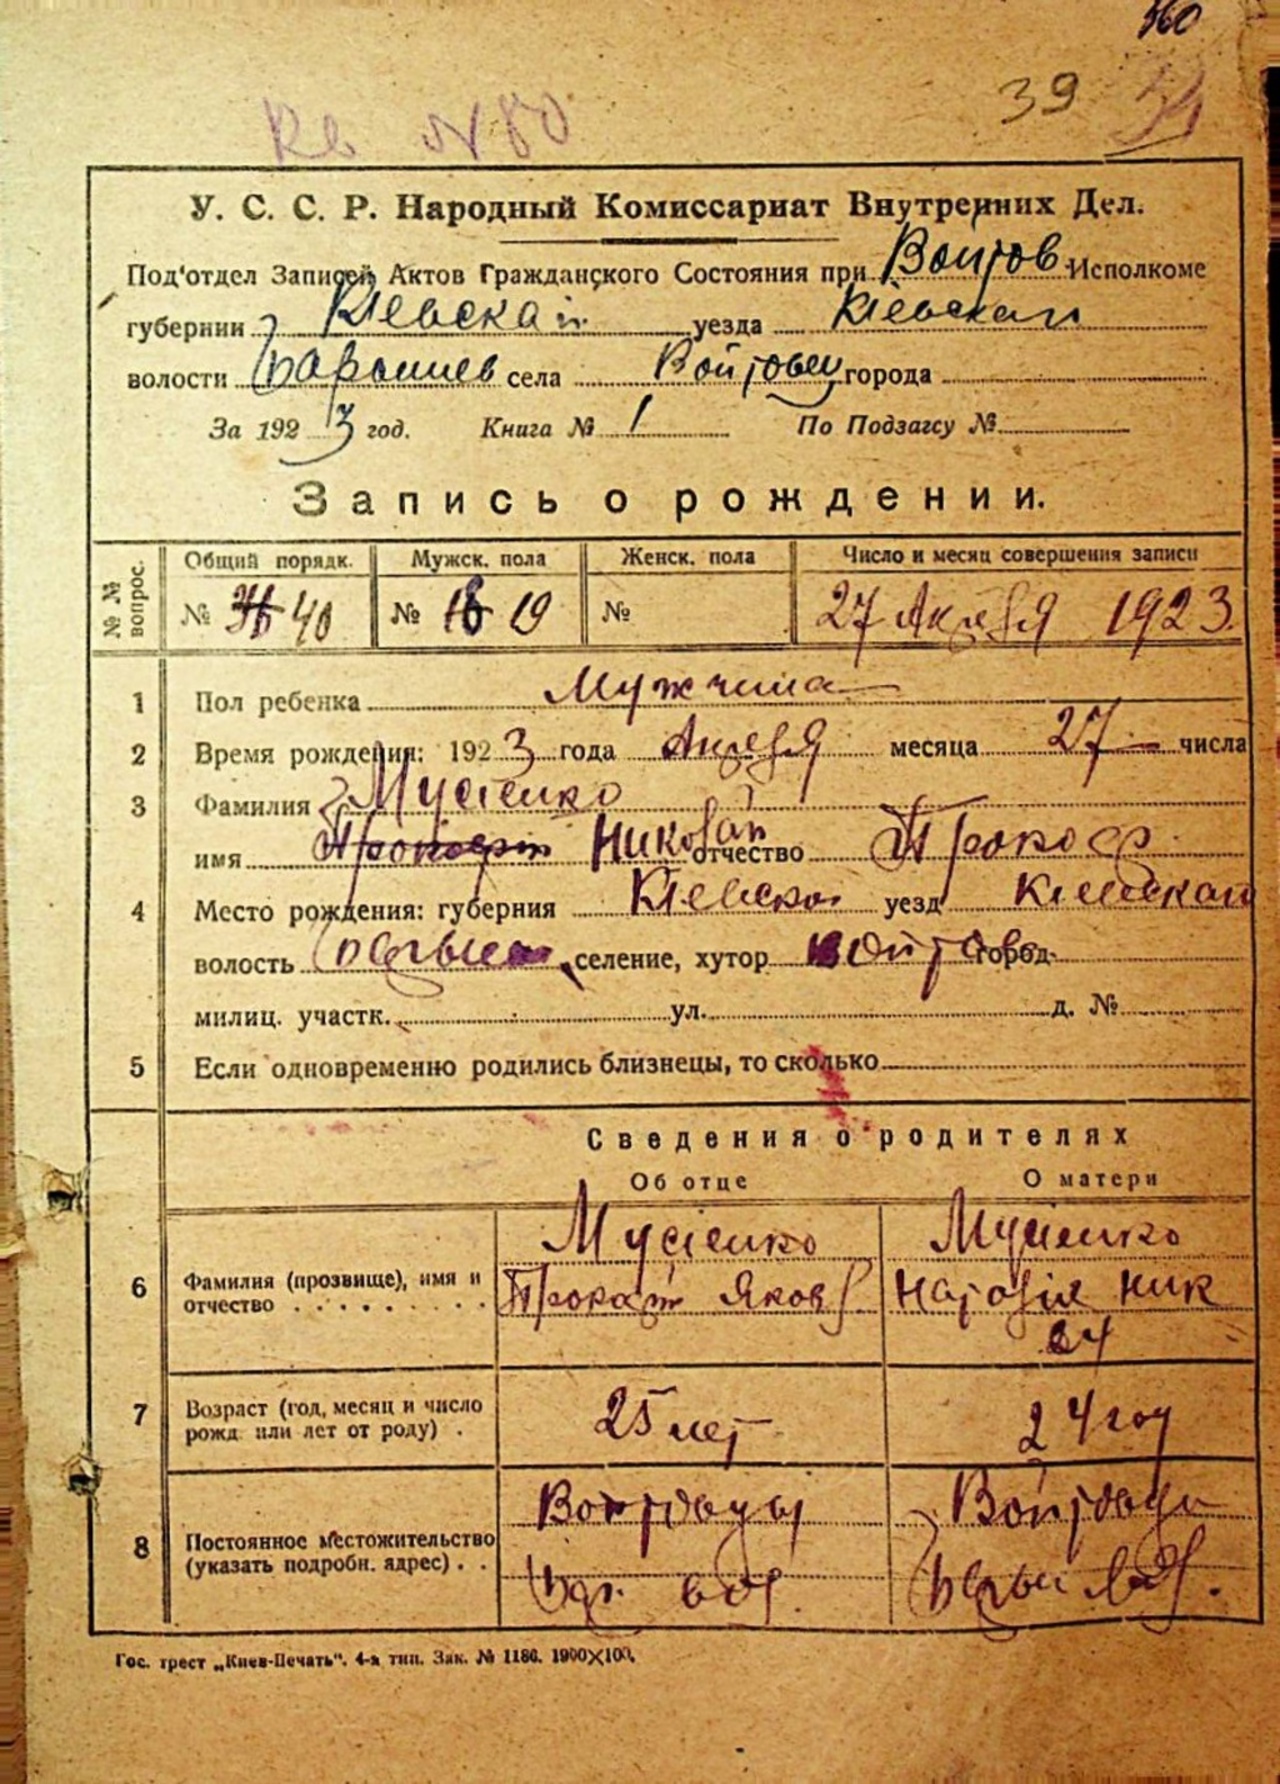 360
39
Кв №80
У. С. С. Р. Народный Комиссариат Внутренних Дел.
Под'отдел Записей Актов Гражданского Состояния при Войтов. Исполкоме
губернии Кіевская уезда Кіевская
волости Барышев села Войтовец города
За 1923 год. Книга № 1 По Подзагсу №
Запись о рождении.
№№ вопрос. Общий порядк. Мужск. пола Женск. пола Число и месяц совершения записи
№ 40 № 18 19 № 27 Апреля 1923.
1 Пол ребенка Мужчина
2 Время рождения: 1923 года Апреля месяца 27 числа
3 Фамилия Мусіенко
имя Прокофій Николай отчество Прокоф.
4 Место рождения: губерния Кіевская уезд Кіевская
волость селение, хутор Войтов город
милиц. участк. ул. д. №
5 Если одновременно родились близнецы, то сколько
Сведения о родителях
Об отце О матери
Мусіенко Мусіенко
6 Фамилия (прозвище), имя и отчество Яков Наталія Ник
24
7 Возраст (год, месяц и число рожд или лет от роду) . 25 лет 24 год
8 Постоянное местожительство (указать подробн. адрес) . . Войтовцы Войтовци
Бар. вол. вол.
Гос. трест „Киев-Печать". 4-я тип. Зак. № 1186. 1900×100.